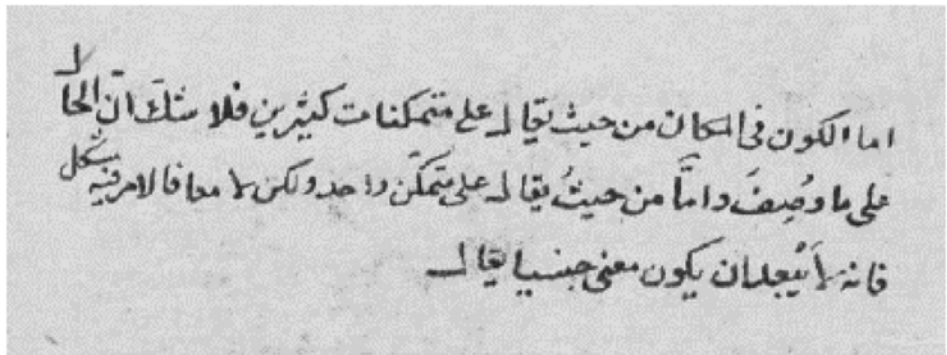 اما الكون فى المكان من حيث يقال على متمكنات كثيرين فلا شك انّ الحال
على ما وُصِفَ وامّا من حيثُ يقال على متمكّن واحد ولكن لا معا فالامر فيه يشكل
فانه لا يَبعد ان يكون معنى جنسيا يقال